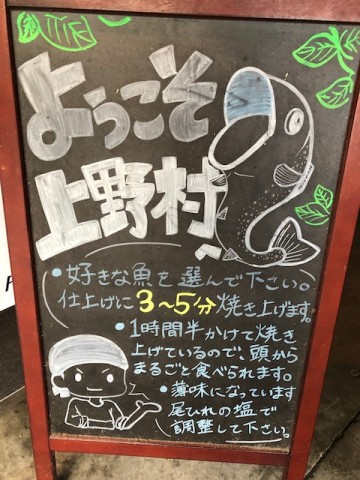 ようこそ
上野村
•好きな魚を選んで下さい。
仕上げに3~5分焼き上げます。
•1時間半かけて焼き
上げているので、頭から
まるごと食べられます。
•薄味になっています
尾ひれの塩で
調整して下さい。